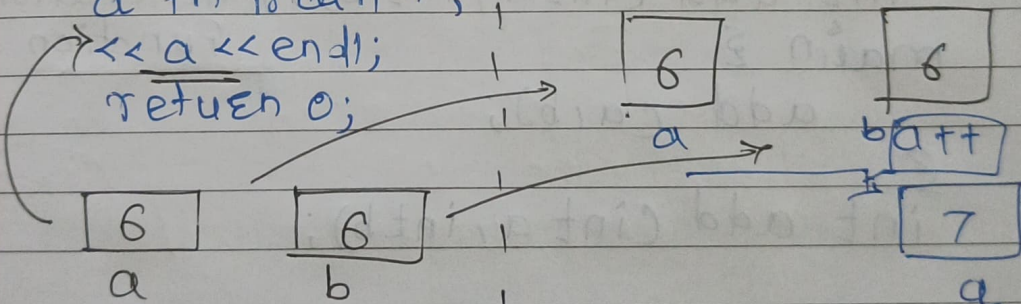 << a << endl;
return 0;
6
a
6
b
6
a
6
b
a++
7
a